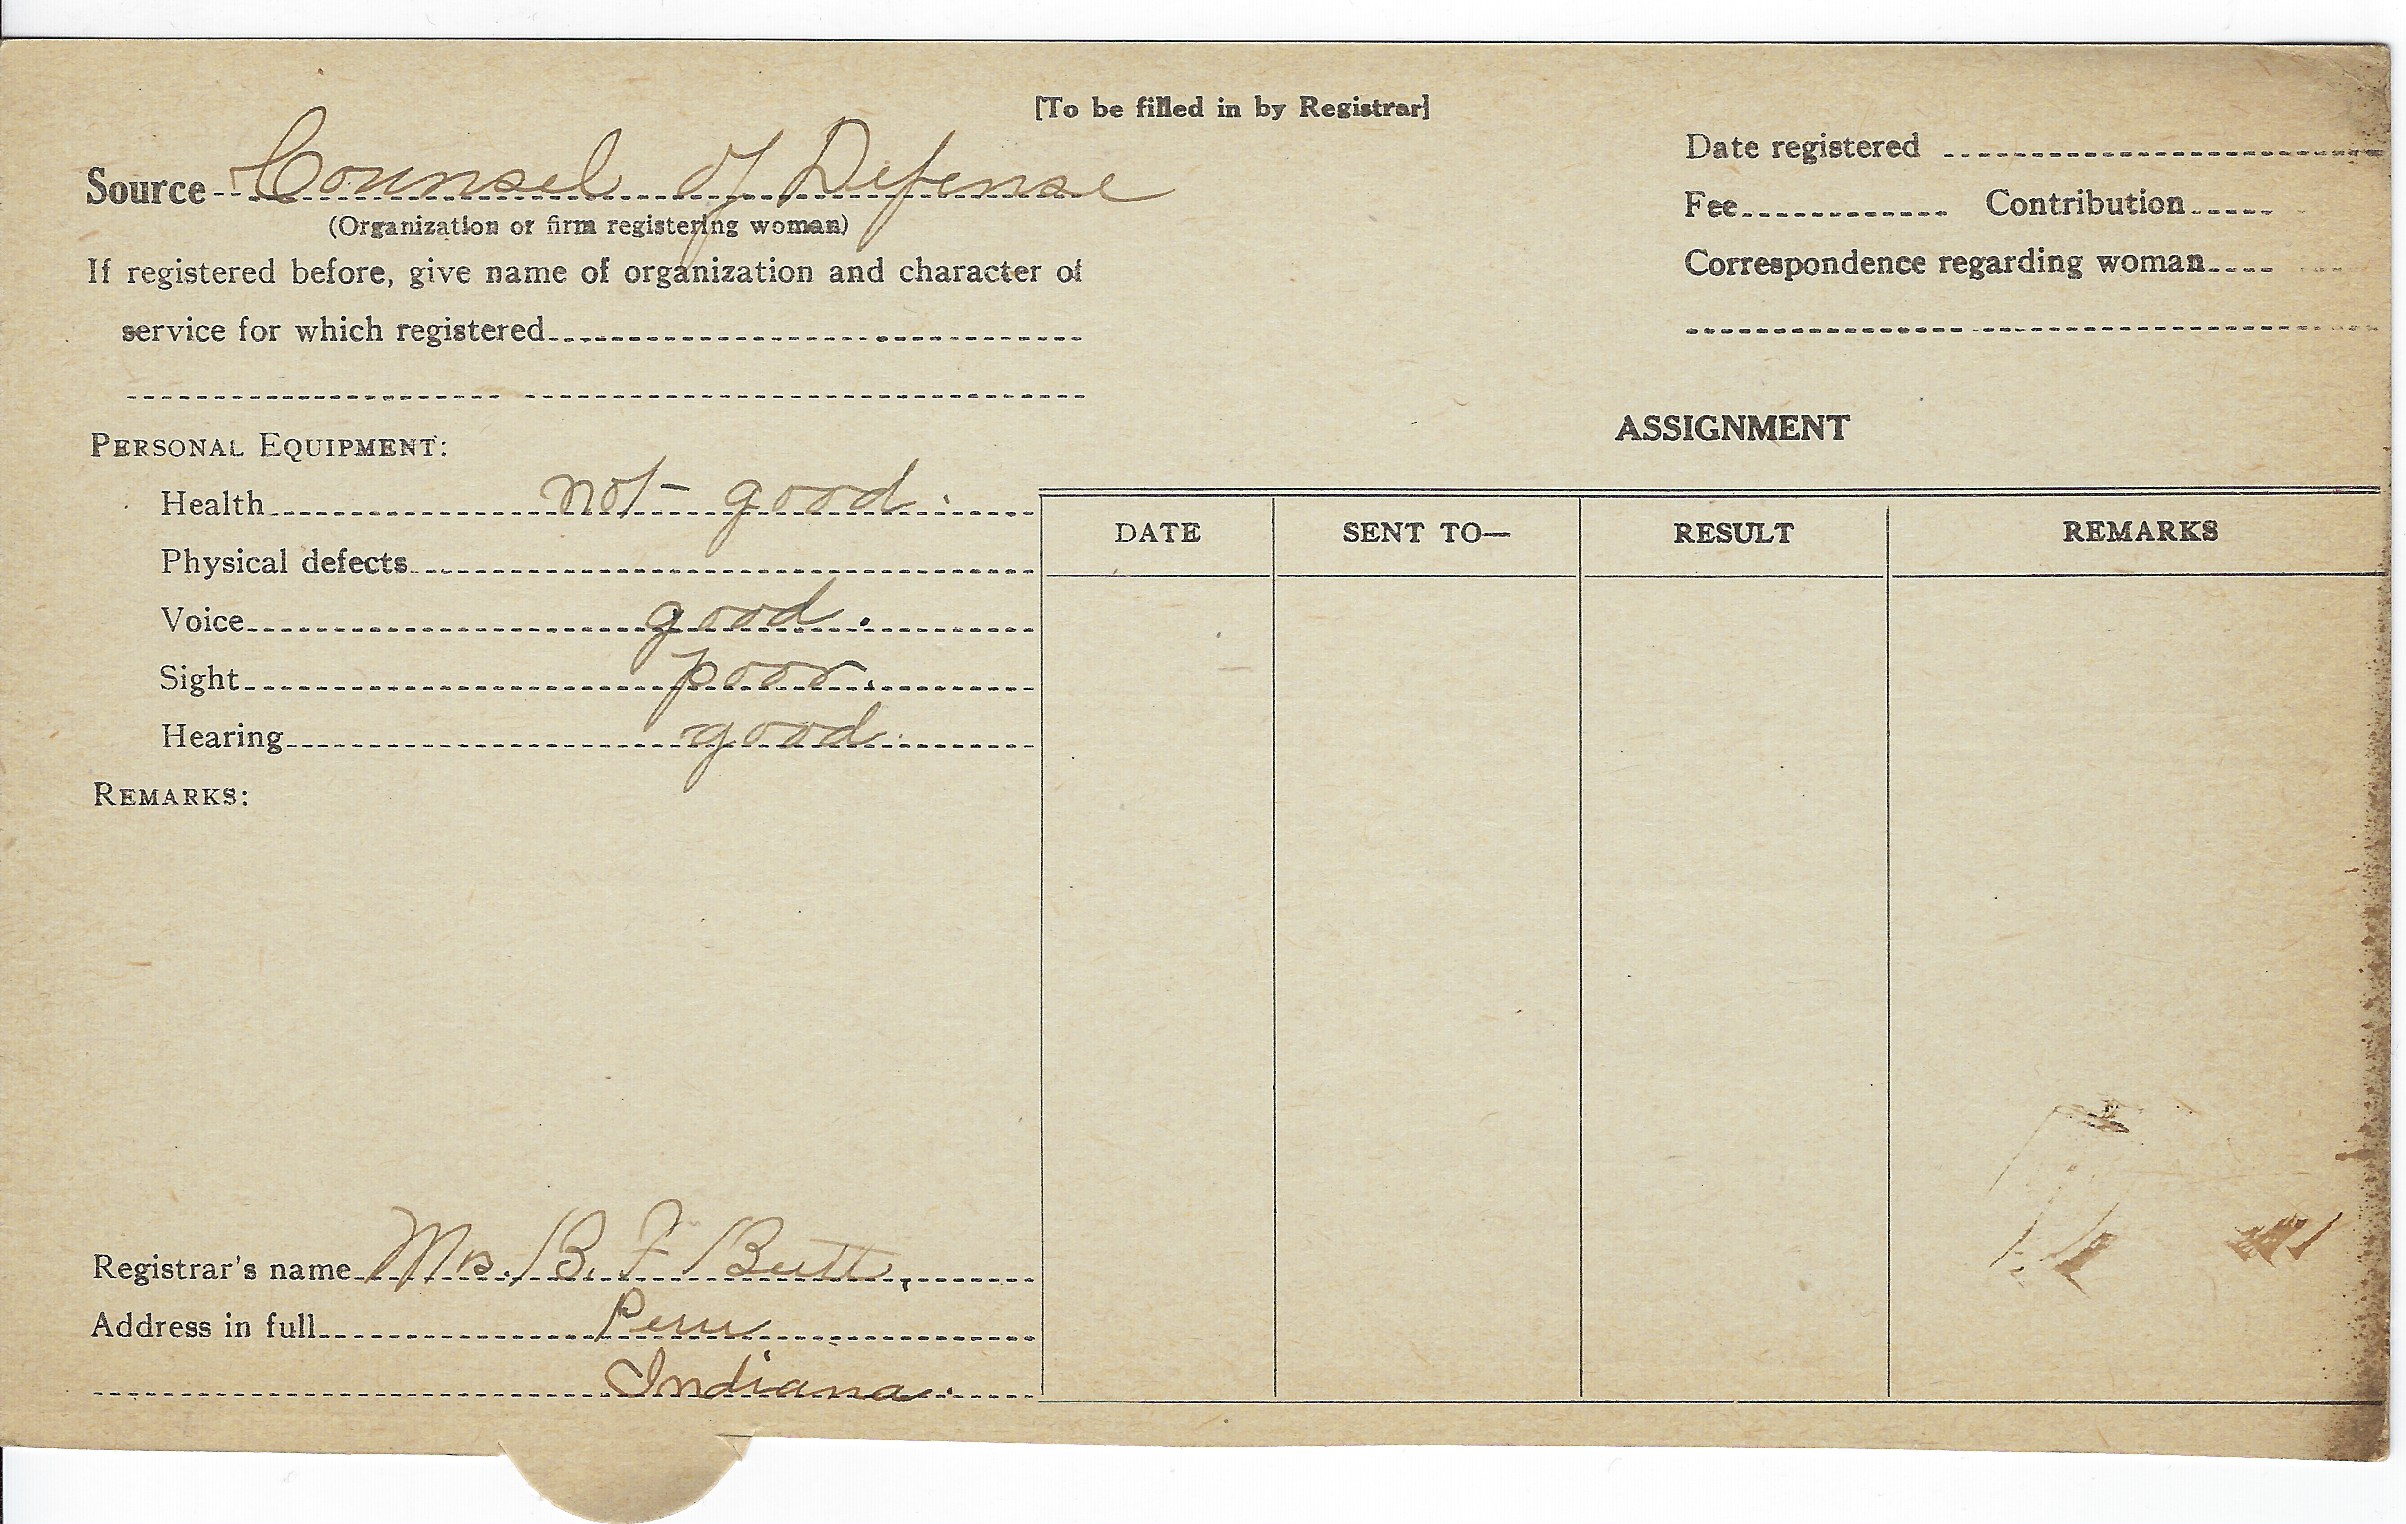 [To be filled in by Registrar]
Source Counsel of Defense
(Organization or firm registering woman)
If registered before, give name of organization and character of
service for which registered
PERSONAL EQUIPMENT:
Health not good.
Physical defects
Voice good.
Sight poor.
Hearing good.
REMARKS:
Registrar's name Mrs. B. F Butt,
Address in full Peru
Indiana.
Date registered
Fee Contribution
Correspondence regarding woman
ASSIGNMENT
DATE SENT TO— RESULT REMARKS